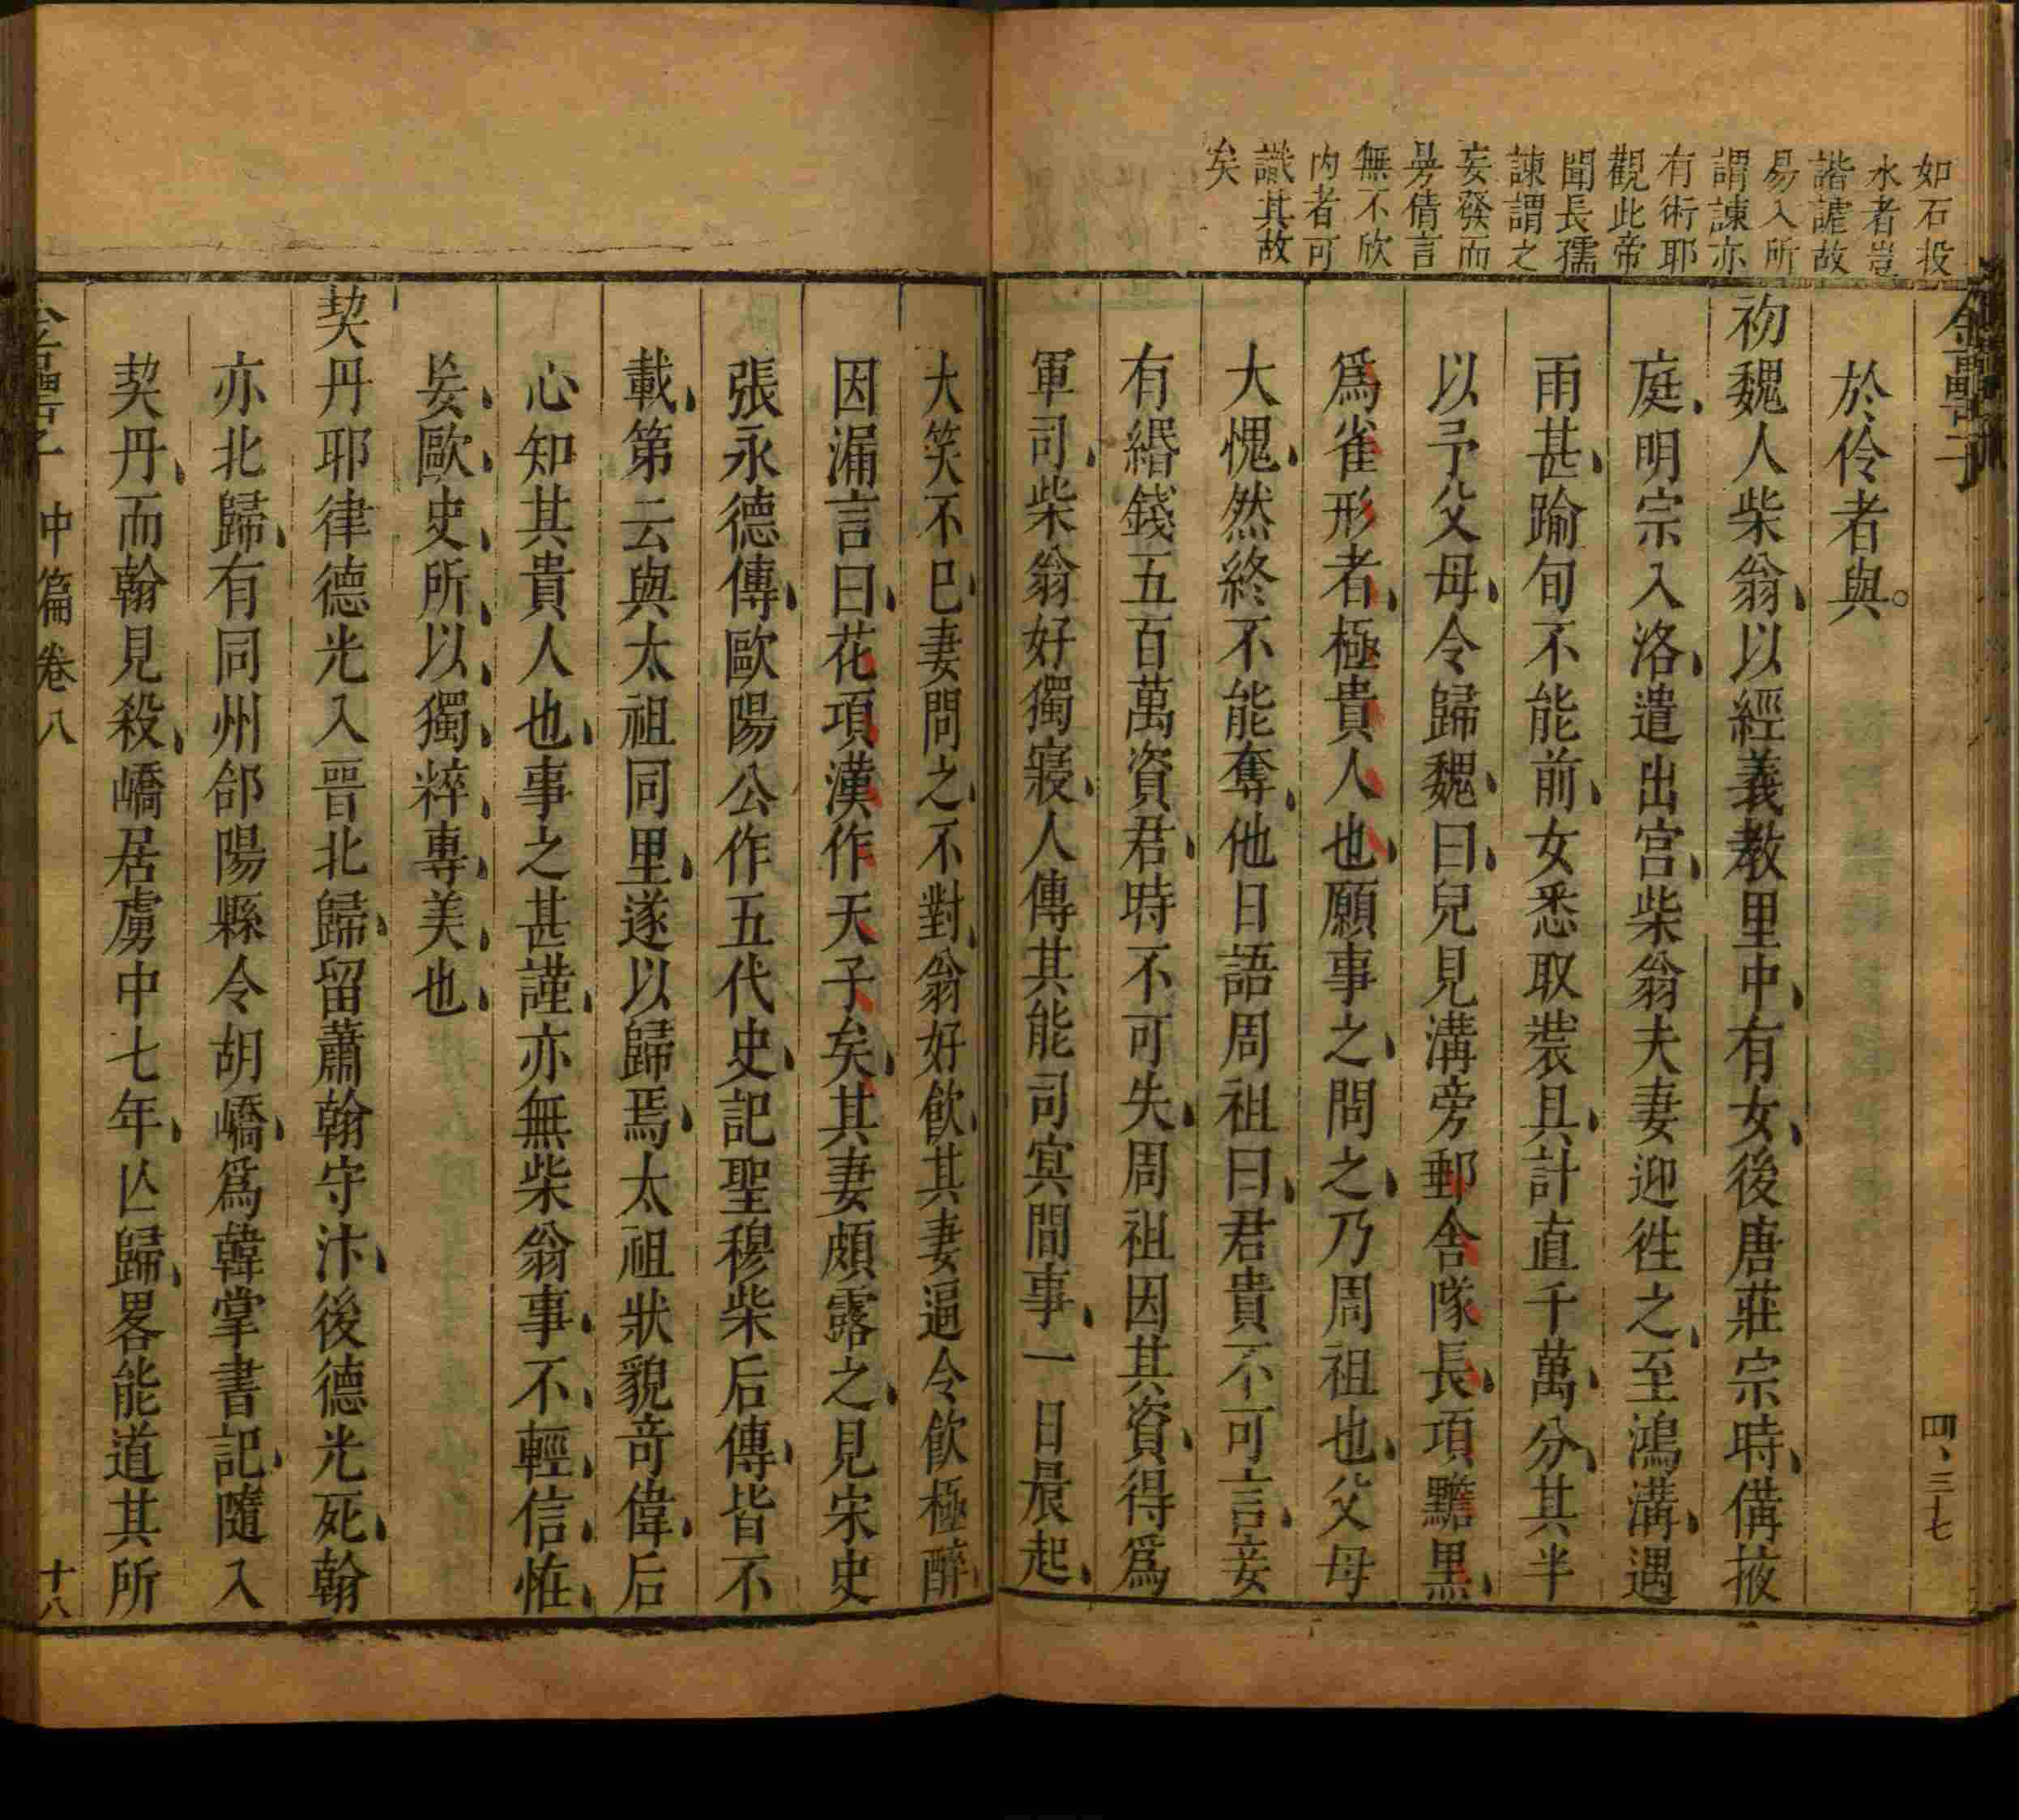 如石投
水者豈
諧謔故
易入所
謂諫亦
有術耶
聞長孺
觀此帝
諫謂之
妄發而
㫄倩言
無不欣
内者可
識其故
矣
金罍子
四、三七
於伶者與。
初魏人柴翁、以經義教里中、有女、後唐莊宗時、備掖
庭、明宗入洛、遣出宫、柴翁夫妻迎徃之、至鴻溝、遇
雨甚、踰旬不能前、女悉取裝具、計直千萬、分其半
以予父母、令歸魏、曰、兒見溝旁郵舍隊長、項黵黒、
爲雀形者、極貴人也、願事之、問之、乃周祖也、父母
大愧、然終不能奪、他日語周祖曰、君貴不可言、妾
有緡錢五百萬資君、時不可失、周祖因其資、得爲
軍司、柴翁好獨寢、人傳其能司冥間事、一日晨起、
大笑不已、妻問之、不對、翁好飲、其妻逼令飲極醉、
因漏言曰、花項漢作天子矣、其妻頗露之、見宋史
張永德傳、歐陽公作五代史、記聖穆柴后傳、皆不
載、第云與太祖同里、遂以歸焉、太祖狀貌竒偉、后
心知其貴人也、事之甚謹、亦無柴翁事、不、輕、信、恠、
妄、歐、史、所、以、獨、粹、專、美、也、
契丹耶律德光入晋北歸、留蕭翰守汴、後德光死、翰
亦北歸、有同州郃陽縣令胡嶠、爲韓掌書記、隨入
契丹、而翰見殺、嶠居虜中七年、亾歸、畧能道其所
金罍子 中篇卷八 十八